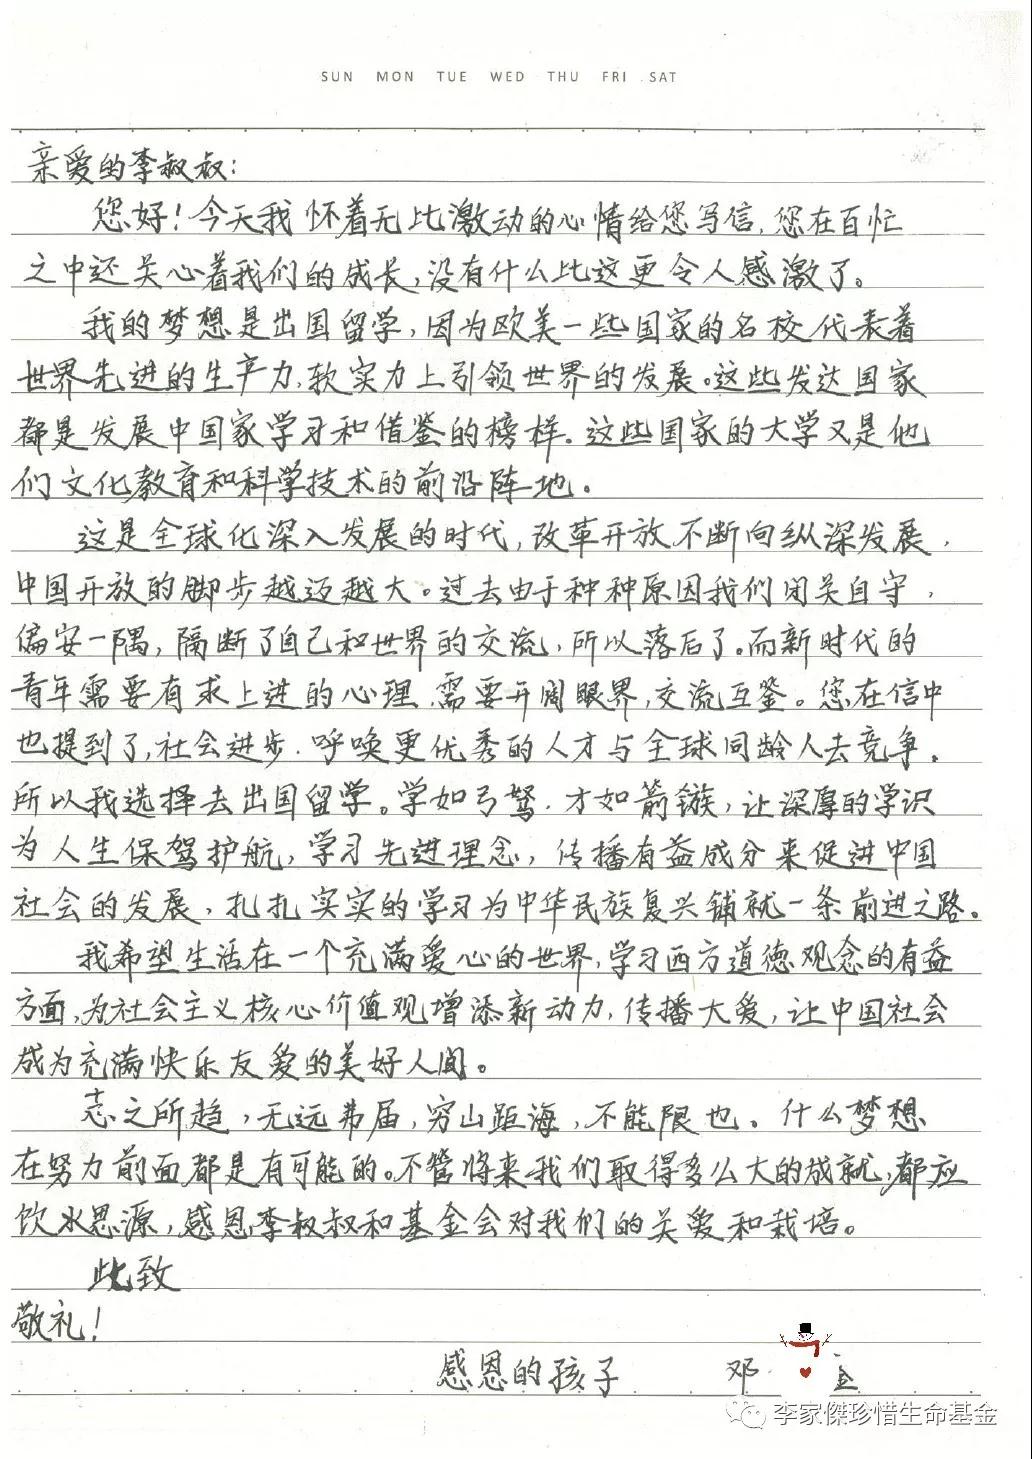 SUN MON TUE WED THU FRI SAT
亲爱的李叔叔：
您好！今天我怀着无比激动的心情给您写信，您在百忙
之中还关心着我们的成长，没有什么比这更令人感激了。
我的梦想是出国留学，因为欧美一些国家的名校代表着
世界先进的生产力，软实力上引领世界的发展。这些发达国家
都是发展中国家学习和借鉴的榜样。这些国家的大学又是他
们文化教育和科学技术的前沿阵地。
这是全球化深入发展的时代，改革开放不断向纵深发展，
中国开放的脚步越迈越大。过去由于种种原因我们闭关自守，
偏安一隅，隔断了自己和世界的交流，所以落后了。而新时代的
青年需要有求上进的心理，需要开阔眼界，交流互鉴。您在信中
也提到了，社会进步，呼唤更优秀的人才与全球同龄人去竞争。
所以我选择去出国留学。学如弓弩，才如箭镞，让深厚的学识
为人生保驾护航，学习先进理念，传播有益成分来促进中国
社会的发展，扎扎实实的学习为中华民族复兴铺就一条前进之路。
我希望生活在一个充满爱心的世界，学习西方道德观念的有益
方面，为社会主义核心价值观增添新动力，传播大爱，让中国社会
成为充满快乐友爱的美好人间。
志之所趋，无远弗届，穷山距海，不能限也。什么梦想
在努力前面都是有可能的。不管将来我们取得多么大的成就，都应
饮水思源，感恩李叔叔和基金会对我们的关爱和栽培。
此致
敬礼！
感恩的孩子 邓
李家傑珍惜生命基金